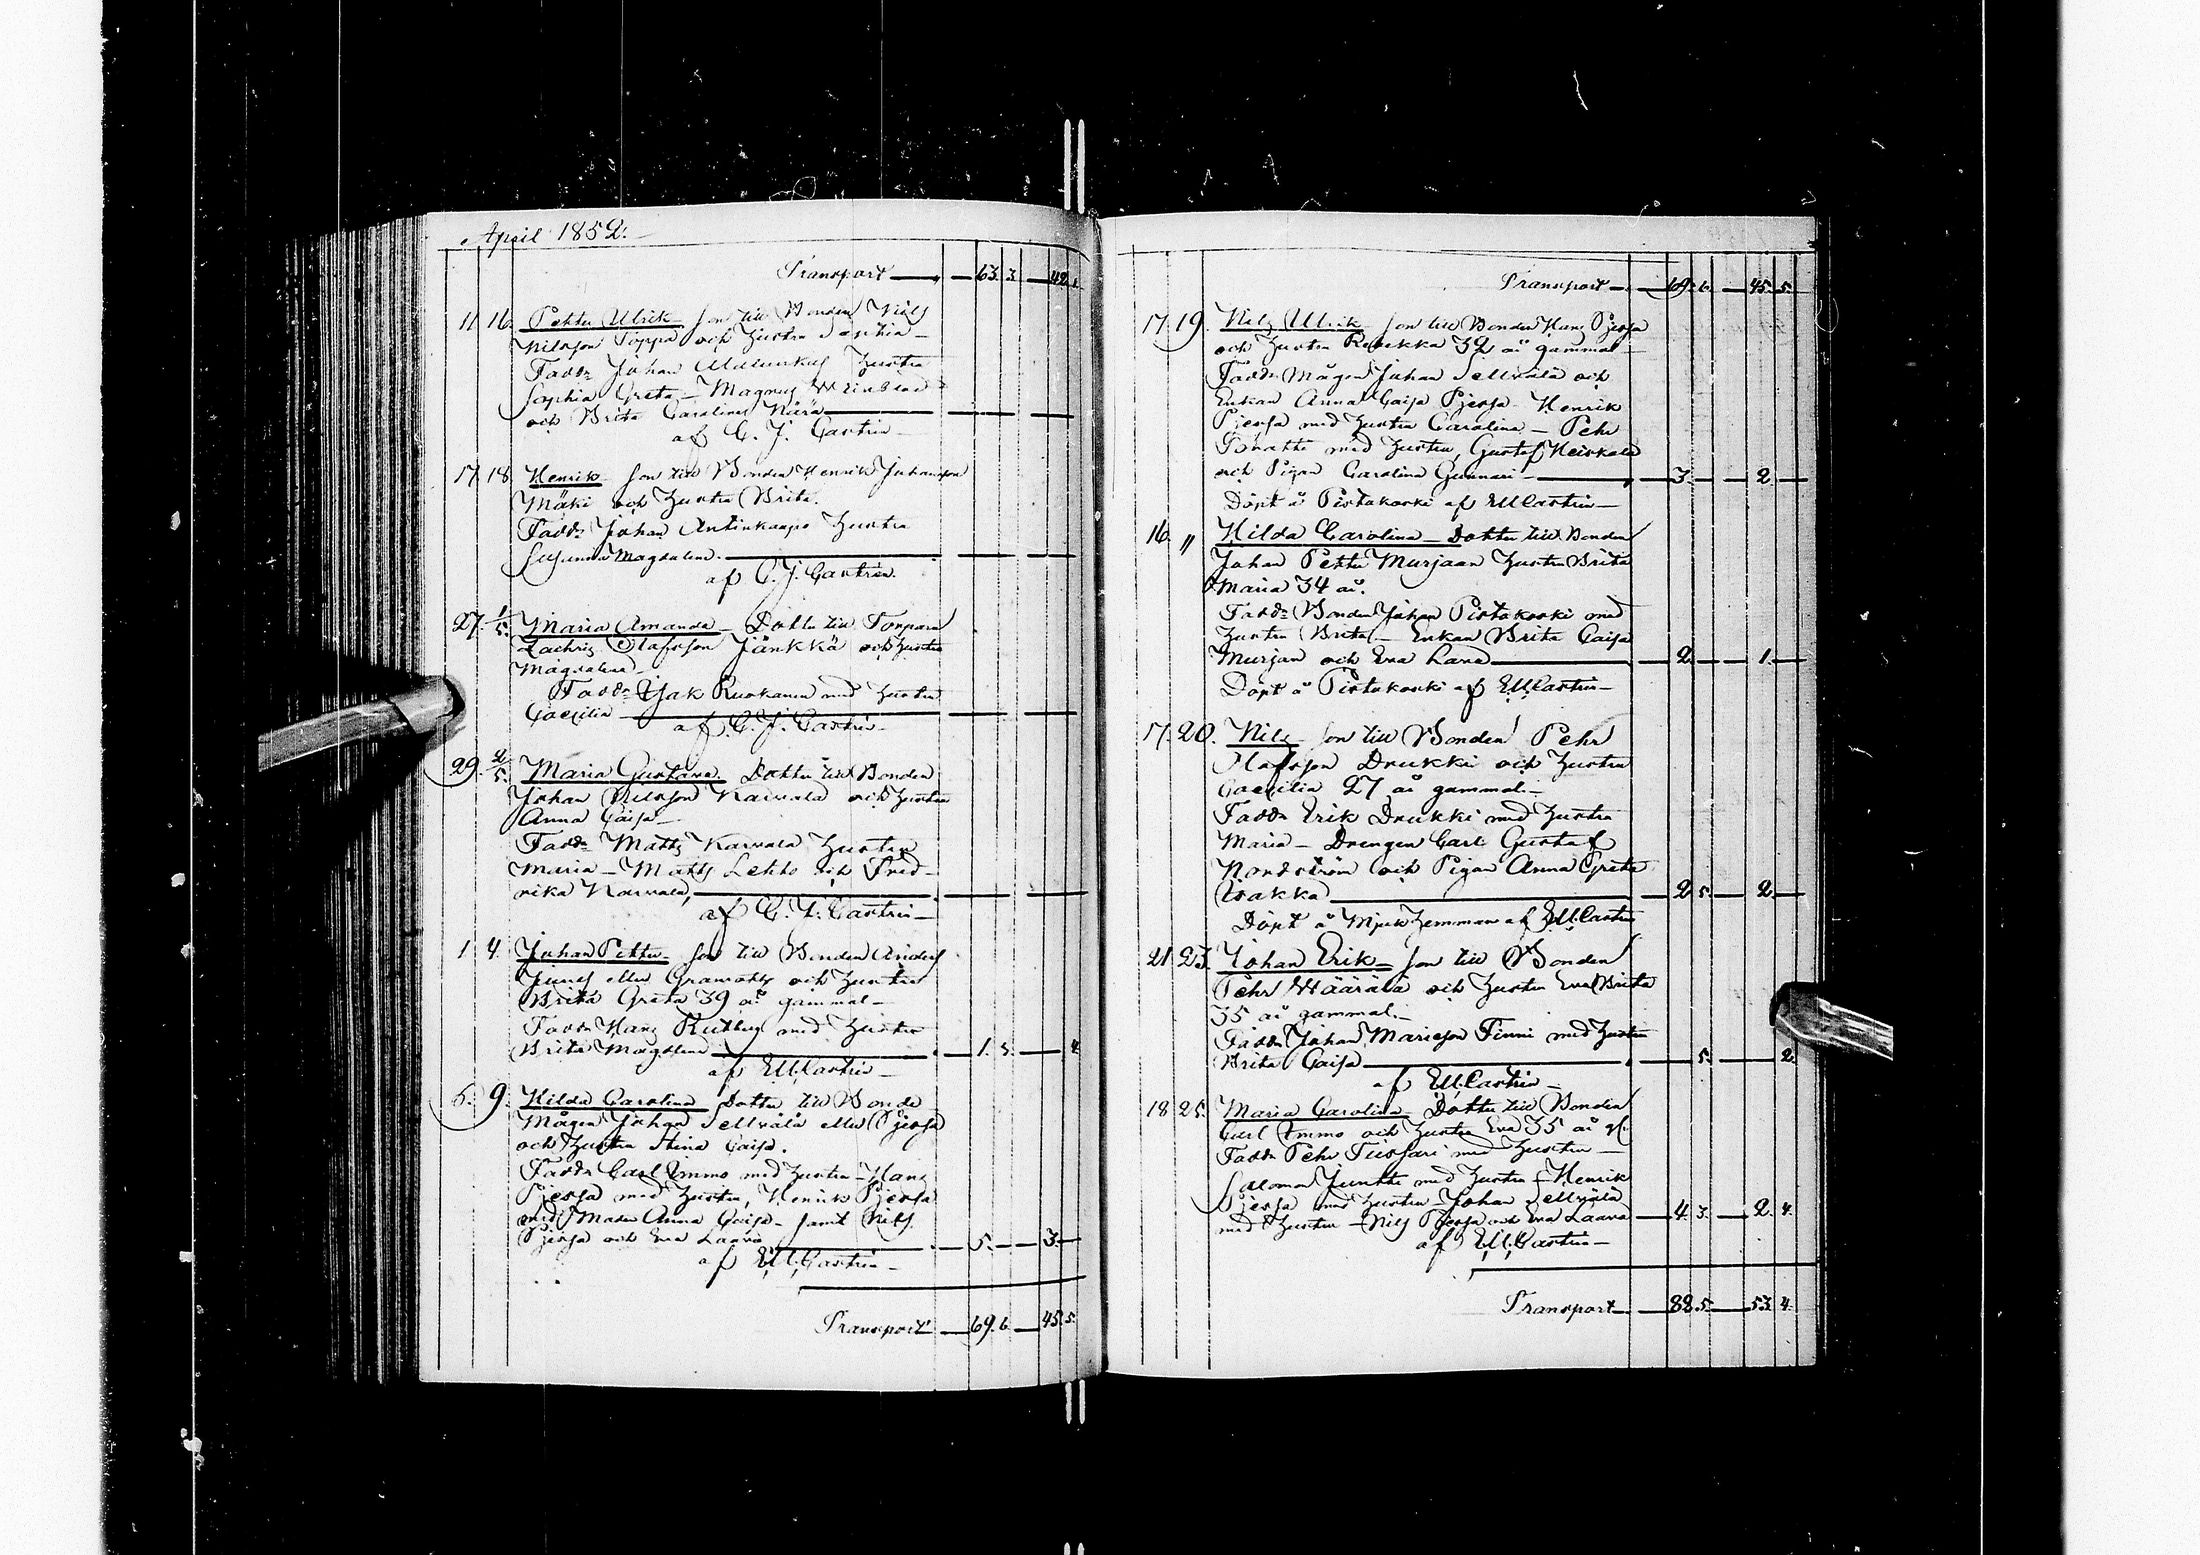 April 1852.
Transport — 63. 3. — 42.
11. 16. Petter Ulrik son till Bonden Nils
Nilsson Poppa och Hustru Sophia
Fadd: Johan Hustru
Sophia Greta — Magnus
och Brita Carolina
af C. J. Castrén
17. 18. Henrik son till Bonden Henrik Johansson
Mäki och Hustru Brita.
Fadd: Johan Antinkaapo Hustru
Susanna Magdalena.
af C. J. Castrén.
27. 1/5. Maria Amanda — Dotter till Torpare
Zachris Olofsson Jänkkä och Hustru
Magdalena
Fadd: Isak Ruokanen med Hustru
Caecilia
af C. J. Castrén
29. 2/5. Maria Gustava. Dotter till Bonden
Johan Nilsson Karvala och Hustru
Anna Caisa
Fadd: Matts Karvala Hustru
Maria — Matts Lehto och Fred-
rika Karvala,
af C. J. Castrén
1. 4. Johan Petter son till Bonden Anders
Junes eller och Hustru
Brita Greta 39 år gammal
Fadd: Hans med Hustru
Brita Magdlena — 1. 3. — 4.
af E.M. Castrén
5. 9. Hilda Carolina Dotter till Bonde
Mågen Johan Sellvälä eller Pjessa
och Hustru Stina Caisa.
Fadd: Carl Immo med Hustru — Hans
Pjessa med Hustru, Henrik Pjessa
med Moder Anna Caisa — samt Nils
Pjessa och Eva Laava — 5. — 3.
af E.M. Castrén
Transport — 69. 6. — 45. 5.
Transport — 69. 6. — 45. 5.
17. 19. Nils Ulrik son till Bonden Hans Pjessa
och Hustru Rebekka 32 år gammal
Fadd: Mågen Johan Sellvälä och
Enkan Anna Caisa Pjessa — Henrik
Pjessa med Hustru Carolina — Pehr
med Hustru, Gustaf Heiskala
och Pigan Carolina Gunnari — 3. — 2.
Döpt å Pirttikoski af E.M. Castrén
16. " Hilda Carolina — Dotter till Bonden
Johan Petter Murjaan Hustru Brita
Maria 34 år.
Fadd: Bonden Johan Pirttikoski med
Hustru Brita — Enkan Brita Caisa
Murjan och Eva Lava — 2. — 1.
Döpt å Pirttikoski af E.M. Castrén
17. 20. Nils son till Bonden Pehr
Olofsson Drukki och Hustru
Caecilia 27 år gammal
Fadd: Erik Drukki med Hustru
Maria — Drengen Carl Gustaf
Nordström och Pigan Anna Greta
Isakka — 2. 5. — 2.
Döpt å af E.M. Castrén
21. 23. Johan Erik — son till Bonden
Pehr Wäärälä och Hustru Eva Brita
35 år gammal.
Fadd: Johan Mariesson Finni med Hustru
Brita Caisa — 5. — 2.
af E.M. Castrén
18. 25. Maria Carolina Dotter till Bonden
Carl Immo och Hustru Eva 35 år gl.
Fadd: Pehr med Hustru
Salomon Junttі med Hustru — Henrik
Pjessa med Hustru — Johan Sellvälä
med Hustru — Nils Pjessa och Eva Laava — 4. 3. — 2. 4.
af E.M. Castrén
Transport — 82. 5. — 53. 4.